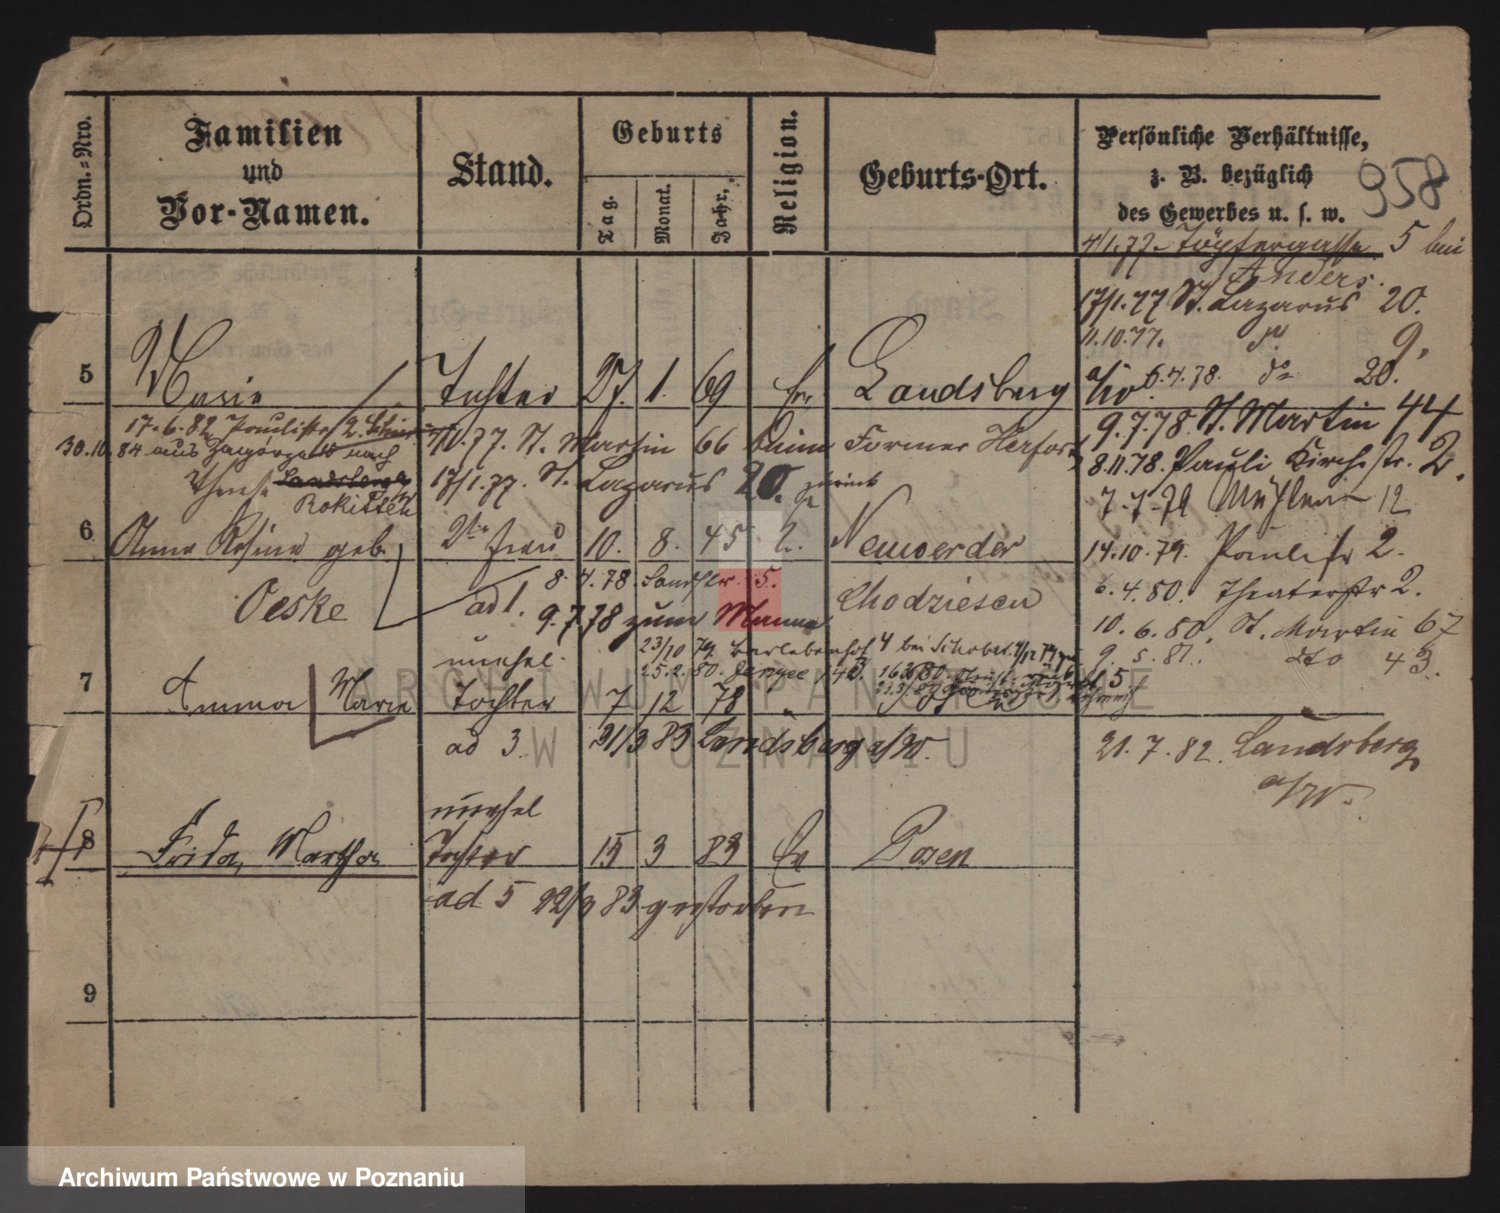 Ordn.-Nro.
Familien
und
Vor-Namen.
Stand.
Geburts
Tag.
Monat.
Jahr.
Religion.
Geburts-Ort.
Persönliche Verhältnisse,
z. B. bezüglich
des Gewerbes u. s. w.
958
4/1.77. Töpfergasse 5 bei
Anders.
17/1.77 St. Lazarus 20.
11.10.77. 9.
5 Marie Tochter 27. 1. 69 Landsberg
a/W. 6.4.78. do 20.
17.6.82 Paulistr 2.
9.7.78 St. Martin 44
30.10.84 aus nach
7/1.77. St. Martin 66 beim Former Herfort
8.11.78. Pauli Kirchstr. 2.
Landsberg
Rokitten
17/1.77. St. Lazarus 20. zurück
7.7.79 Mühlen 12
6 Anna Rosine geb. Oeske
2te Frau 10. 8. 45 Neuwerder
Chodziesen
14.10.79. Paulistr 2.
ad 1. 8.4.78. 5.
6.4.80. Theaterstr 2.
9.7.78 zum Manne
10.6.80. St. Martin 67
23/10 79. Berlebenhof 4 bei Schober
9.5.81. dto 43.
25.2.80.
7 Emma Marie
unehel.
Tochter 7 12 78 "
ad 3 21/3 83 Landsberg a/W.
21.7.82. Landsberg
a/W.
8 Frida, Martha
unehel
Tochter 15 3 83 Ev Posen
ad 5 22/3 83 gestorben
9
ARCHIWUM PAŃSTWOWE
W POZNANIU
Archiwum Państwowe w Poznaniu